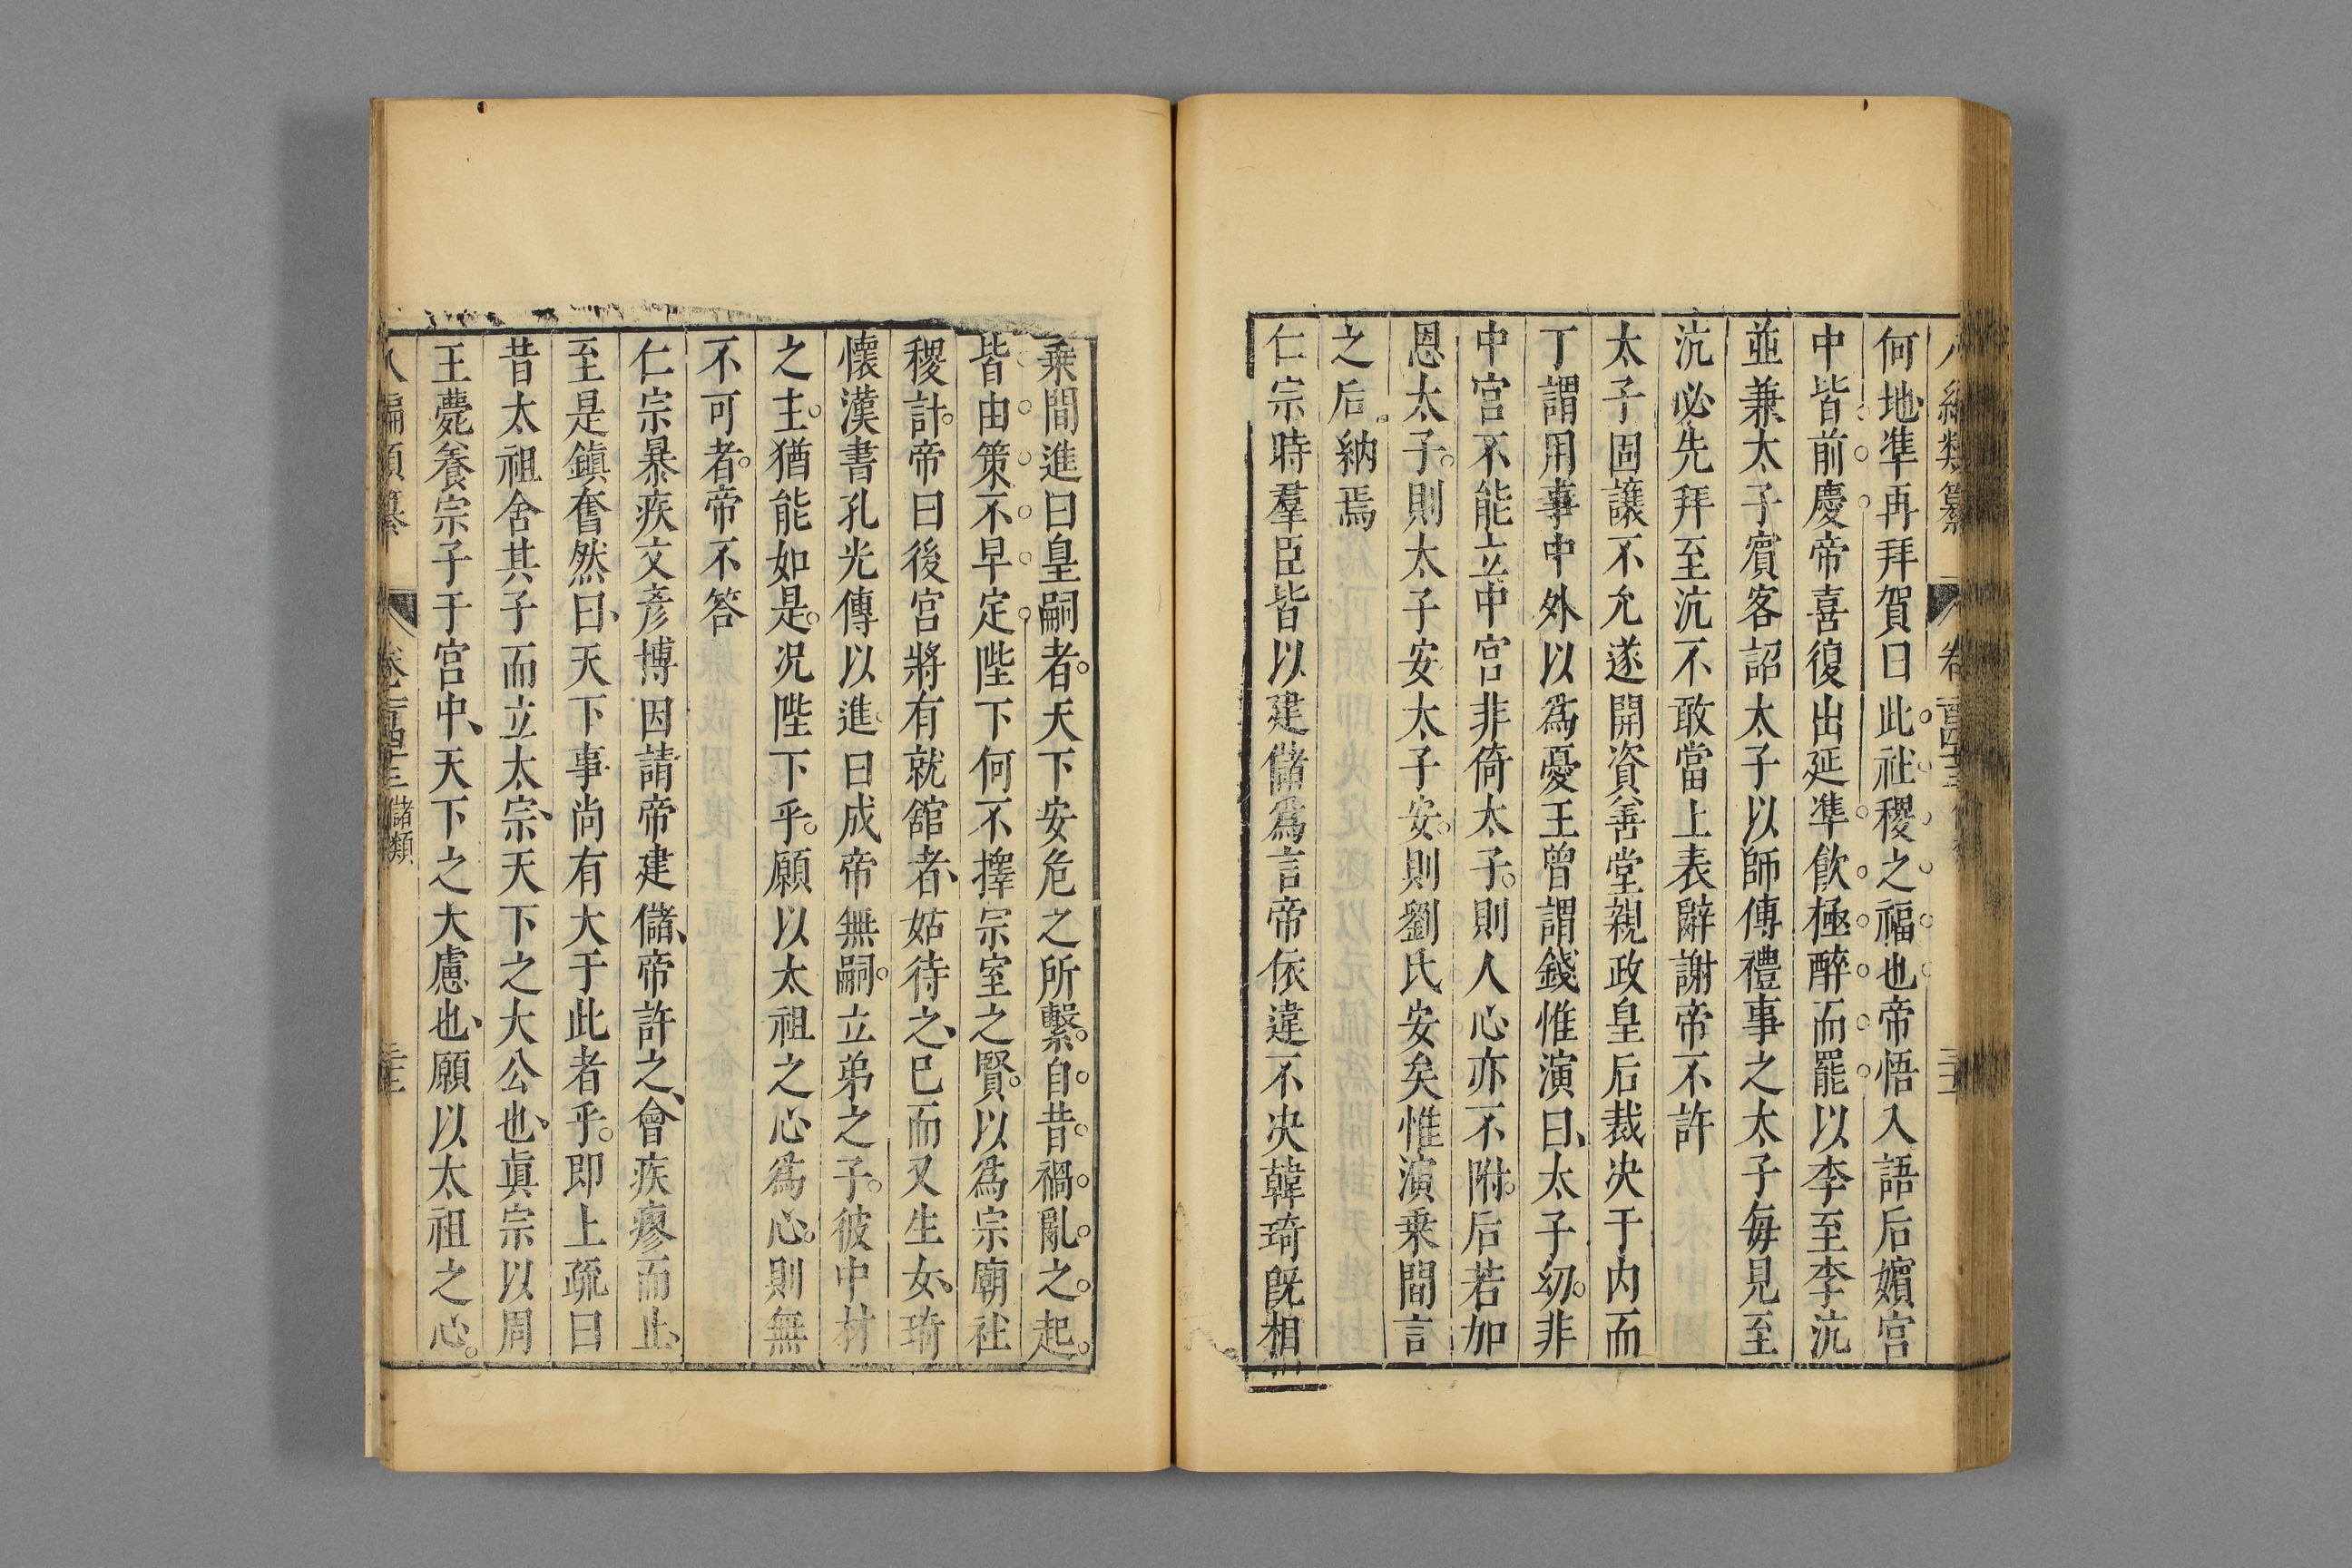 八編類纂 卷一百四十三 儲類
何地準再拜賀曰此社稷之福也帝悟入語后嬪宮
中皆前慶帝喜復出延準飲極醉而罷以李至李沆
並兼太子賓客詔太子以師傅禮事之太子每見至
沆必先拜至沆不敢當上表辭謝帝不許
太子固讓不允遂開資善堂親政皇后裁决于内而
丁謂用事中外以爲憂王曾謂錢惟演曰太子幼非
中宮不能立中宮非倚太子則人心亦不附后若加
恩太子則太子安太子安則劉氏安矣惟演乗間言
之后納焉
仁宗時羣臣皆以建儲爲言帝依違不决韓琦旣相
乗間進曰皇嗣者天下安危之所繫自昔禍亂之起
皆由策不早定陛下何不擇宗室之賢以爲宗廟社
稷計帝曰後宮將有就舘者姑待之已而又生女琦
懷漢書孔光傳以進曰成帝無嗣立弟之子彼中材
之主猶能如是况陛下乎願以太祖之心爲心則無
不可者帝不答
仁宗暴疾文彦博因請帝建儲帝許之會疾瘳而止
至是鎮奮然曰天下事尚有大于此者乎即上疏曰
昔太祖舍其子而立太宗天下之大公也眞宗以周
王薨養宗子于宮中天下之大慮也願以太祖之心
八編類纂 卷一百四十三 儲類